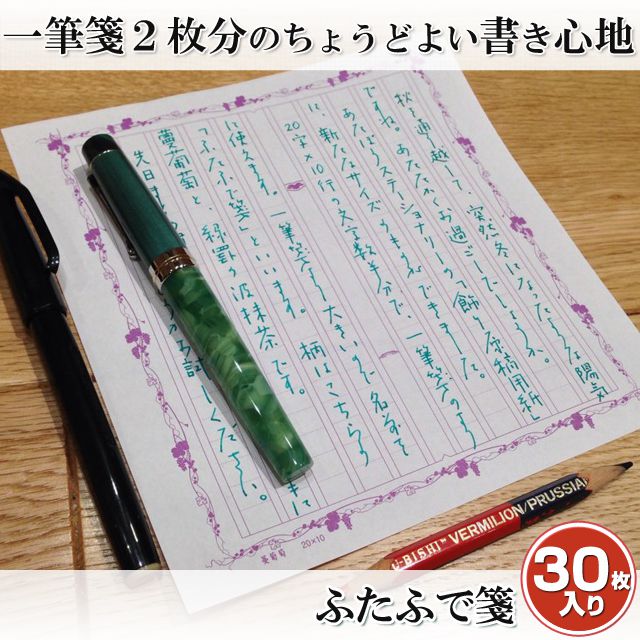 一筆箋2枚分のちょうどよい書き心地
秋を通り越して、突然冬になったような陽気
ですね。あたたかくお過ごしでしょうか。
あたぼうステーショナリーの「飾り原稿用紙」
に、新たなサイズのものができました。
20字×10行の文字数半分で、一筆箋のよう
に使えます。一筆箋より大きいので名づけて
「ふたふで箋」といいます。柄はこちらの
蔓葡萄と、緑罫の波抹茶です。
先日
試しください。
蔓葡萄 20×10
U-BISHI™ VERMILION/PRUSSIA
ふたふで箋
30枚入り